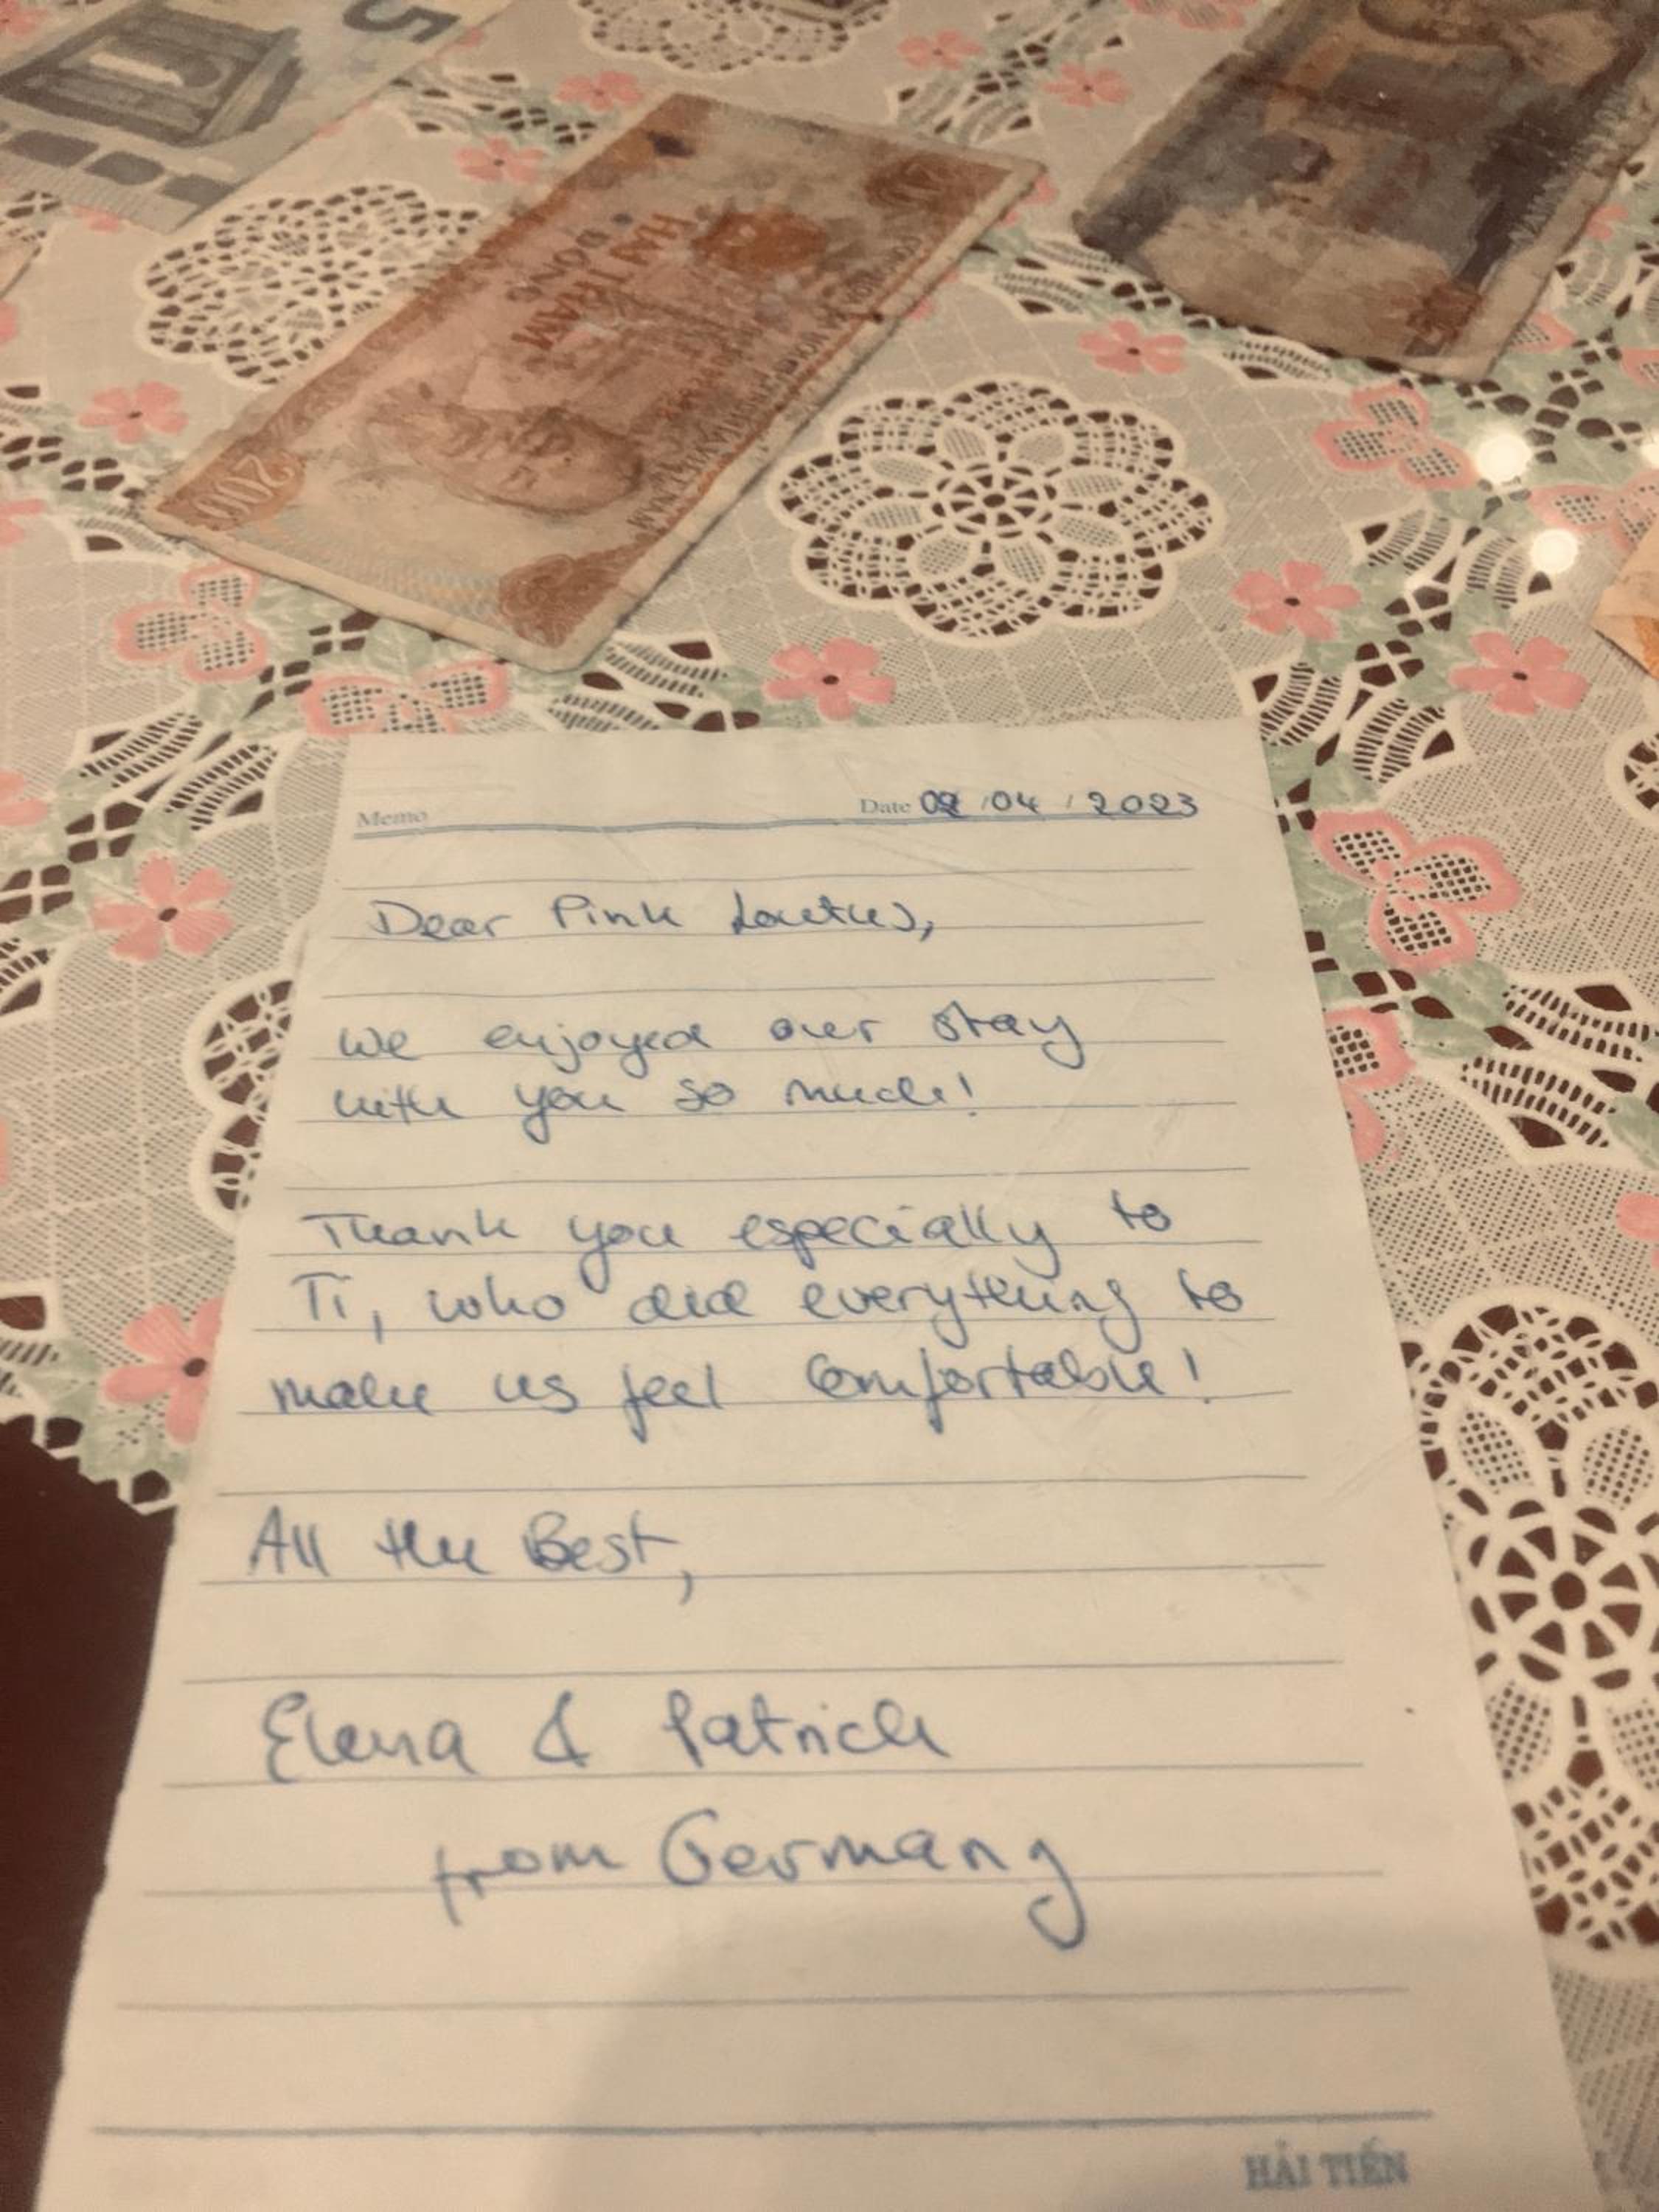 5
200
HAI TRĂM
ĐỒNG
Memo
Date 02 / 04 / 2023
Dear Pink Loutus,
We enjoyed our stay
with you so much!
Thank you especially to
Ti, who did everything to
make us feel comfortable!
All the Best,
Elena & Patrick
from Germany
HẢI TIẾN